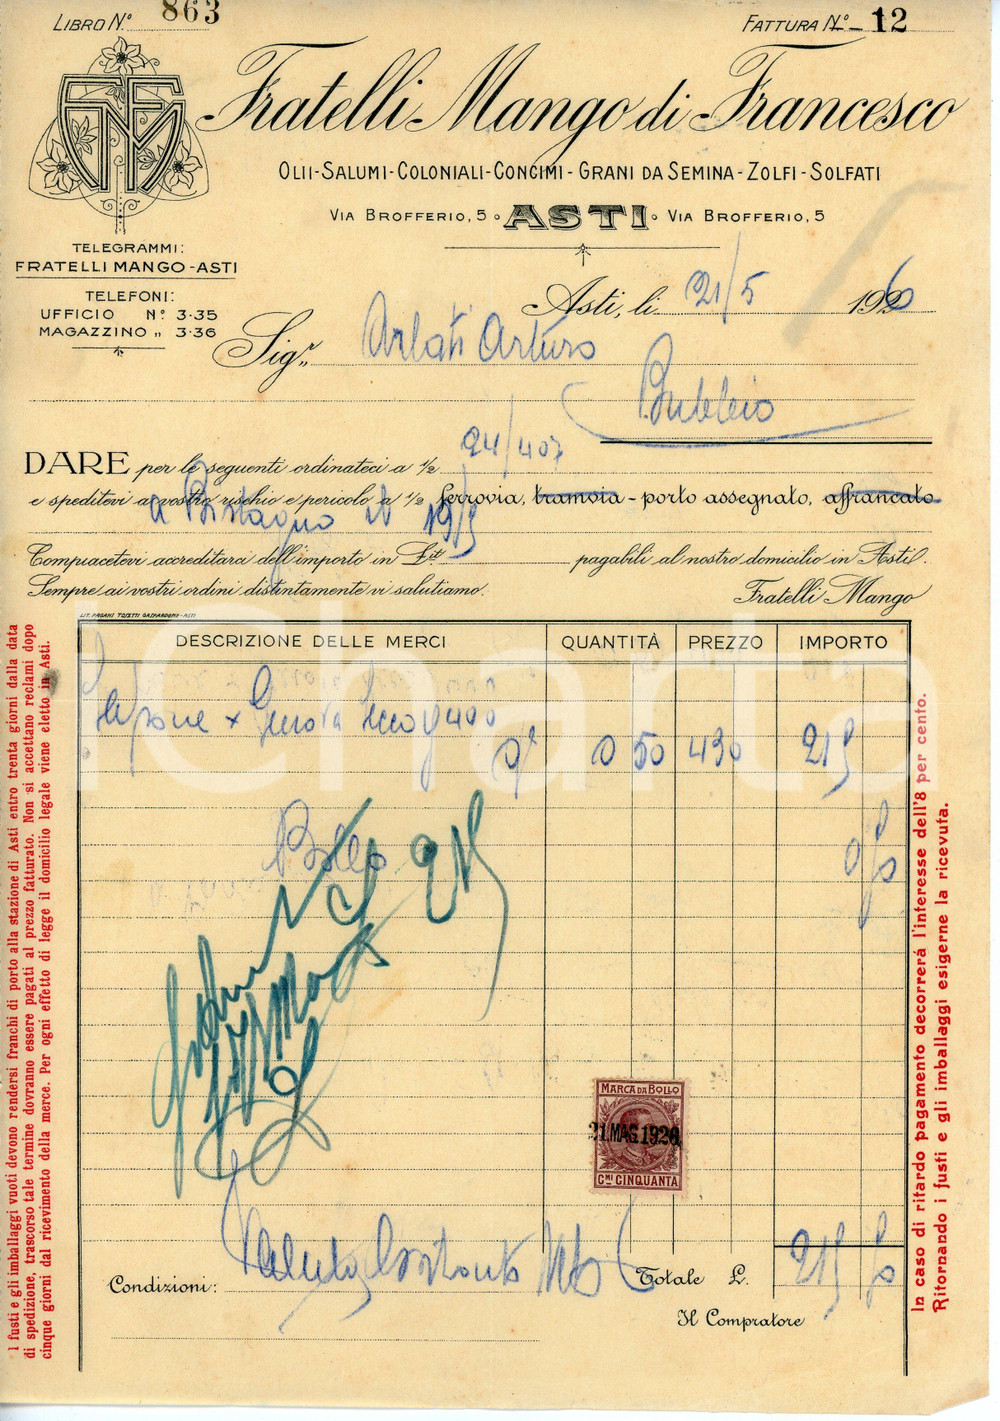 LIBRO N.° 863
FATTURA N.° 12
Fratelli Mango di Francesco
OLII-SALUMI-COLONIALI-CONCIMI-GRANI DA SEMINA-ZOLFI-SOLFATI
VIA BROFFERIO, 5 ASTI VIA BROFFERIO, 5
TELEGRAMMI:
FRATELLI MANGO-ASTI
TELEFONI:
UFFICIO N° 3-35
MAGAZZINO „ 3-36
Asti, li 21/5 1926
Sig.r Arlati Arturo
Bubbio
DARE per le seguenti ordinateci a ½ 24/407
e speditevi a vostro rischio e pericolo a ½ ferrovia, tramvia - porto assegnato, affrancato.
a Bistagno il 19/5
Compiacetevi accreditarci dell'importo in Lit. pagabili al nostro domicilio in Asti.
Sempre ai vostri ordini distintamente vi salutiamo.
Fratelli Mango
LIT. PAGANI TOSETTI GASPARDONE-ASTI
DESCRIZIONE DELLE MERCI QUANTITÀ PREZZO IMPORTO
Sapone x Genova secco g 400
ql 0 50 430 215
Bollo 0 50
MARCA DA BOLLO
21.MAG.1926
C.MI CINQUANTA
Condizioni: Totale L. 215 50
Il Compratore
I fusti e gli imballaggi vuoti devono rendersi franchi di porto alla stazione di Asti entro trenta giorni dalla data
di spedizione, trascorso tale termine dovranno essere pagati al prezzo fatturato. Non si accettano reclami dopo
cinque giorni dal ricevimento della merce. Per ogni effetto di legge il domicilio legale viene eletto in Asti.
In caso di ritardo pagamento decorrerà l'interesse dell'8 per cento.
Ritornando i fusti e gli imballaggi esigerne la ricevuta.
Charta